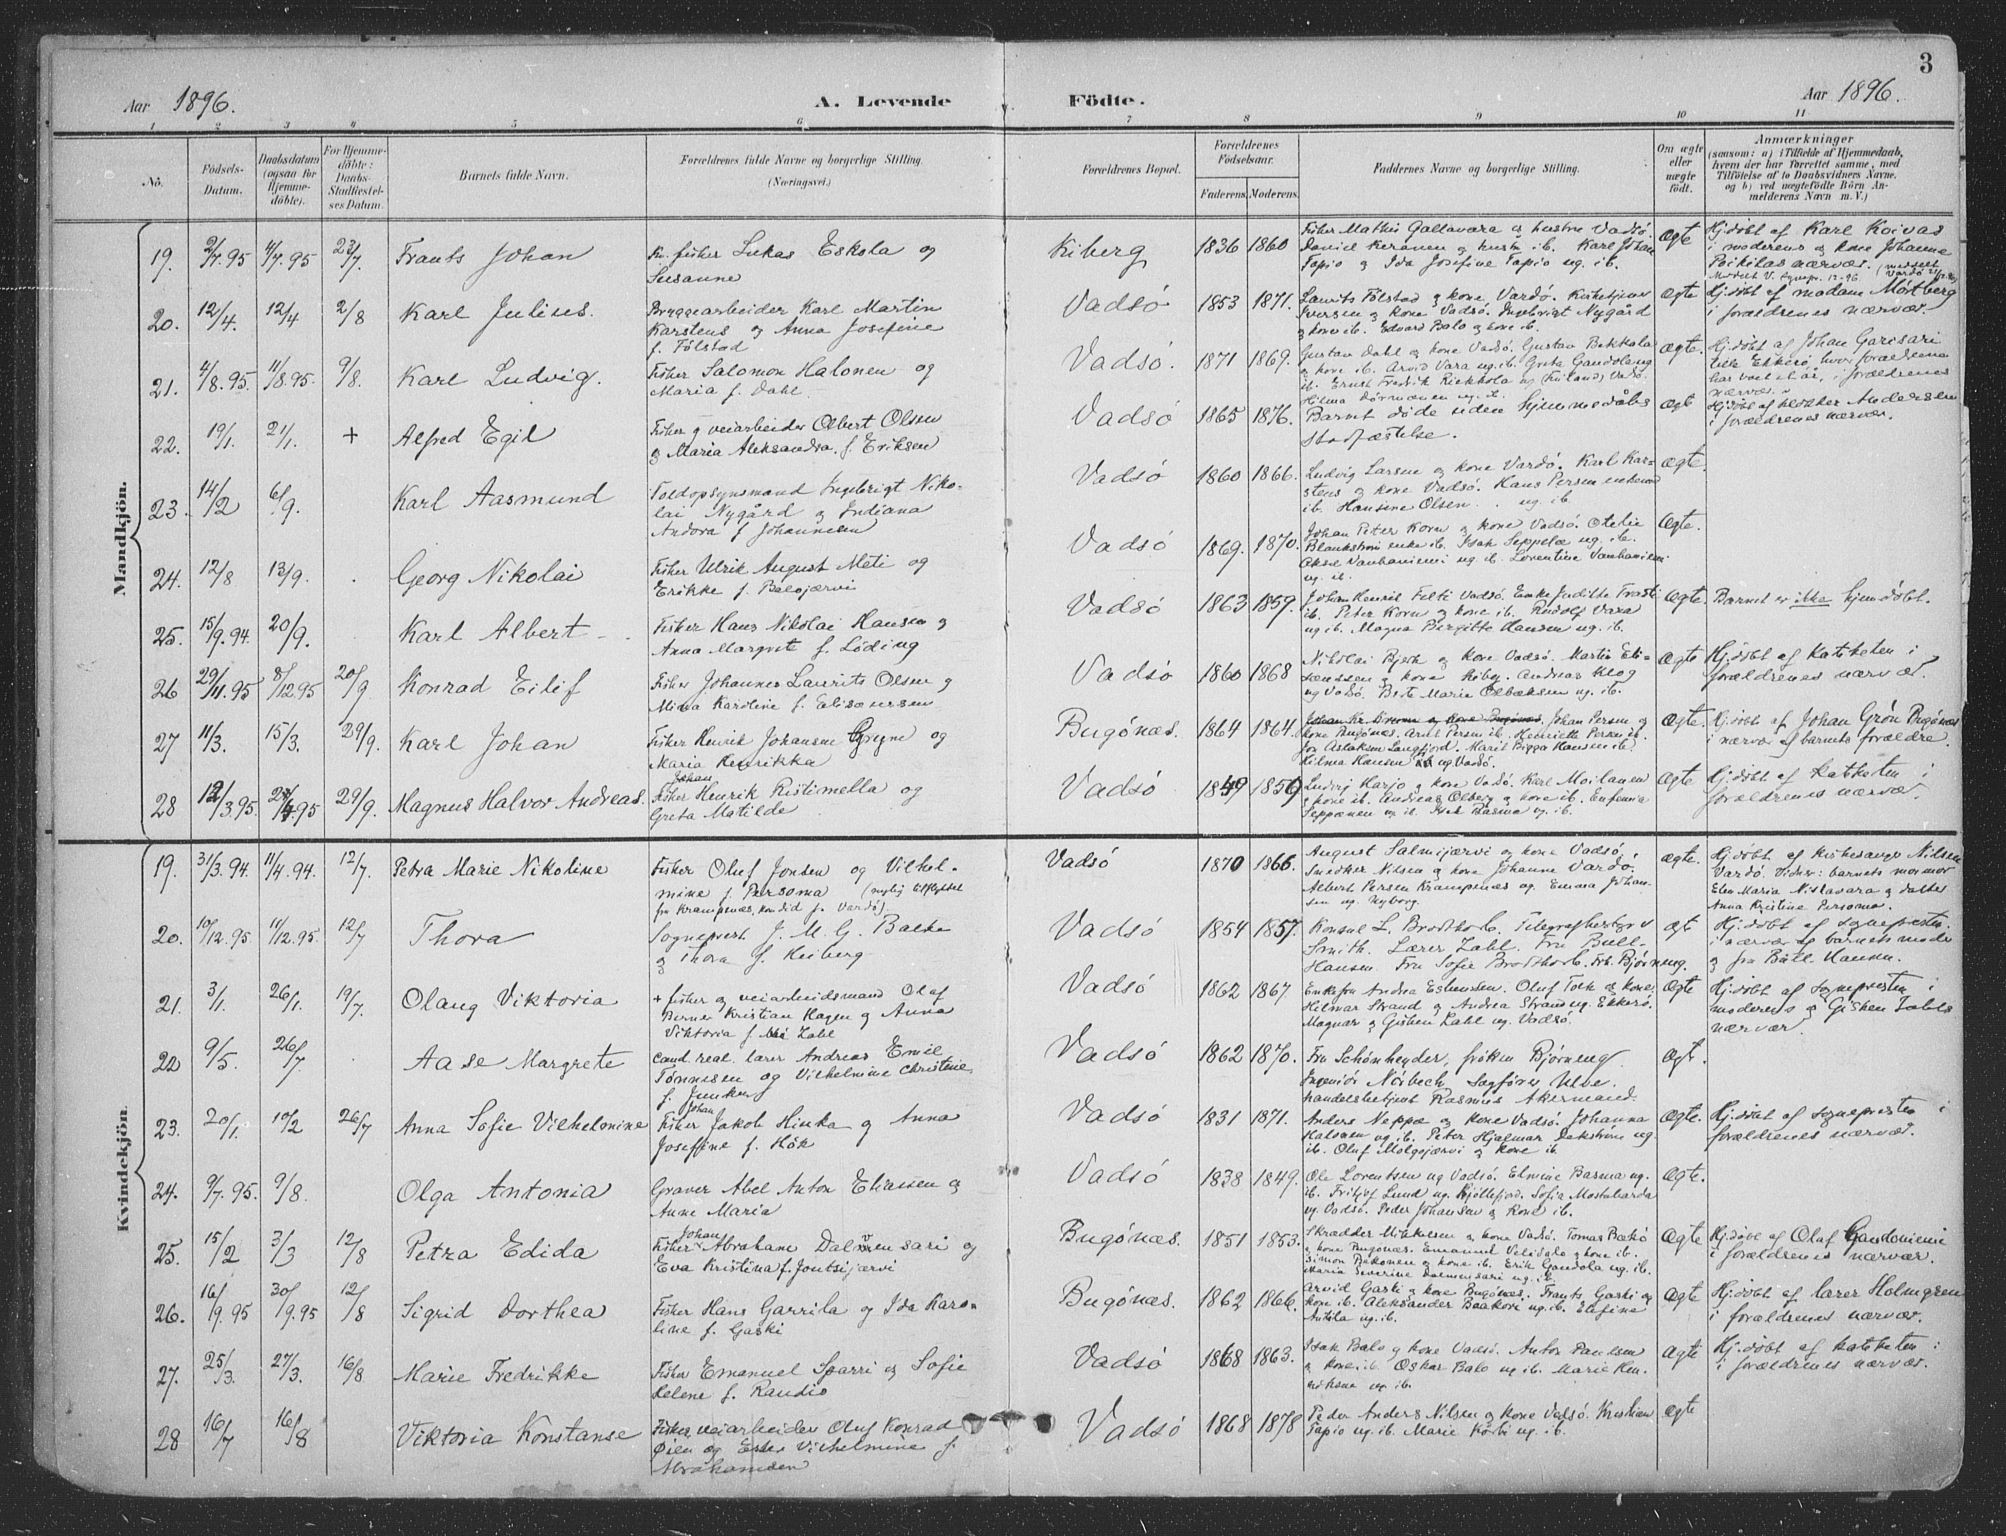 3
Aar 1896.
A. Levende
Födte.
Aar 1896.
1 2 3 4 5 6 7 8 9 10 11
No.
Födsels-
Datum.
Daabsdatum
(ogsaa for
Hjemme-
döbte).
For Hjemme-
döbte:
Daabs-
Stadfæstel-
ses Datum.
Barnets fulde Navn.
Forældrenes fulde Navne og borgerlige Stilling.
(Næringsvei.)
Forældrenes Bopæl.
Forældrenes
Födselsaar.
Faderens.
Moderens.
Faddernes Navne og borgerlige Stilling.
Om ægte
eller
uægte
födt.
Anmærkninger
(saasom: a) i Tilfælde af Hjemmedaab,
hvem der har forrettet samme, med
Tilföielse af to Daabsvidners Navne.
og b) ved uægtefödte Börn An-
melderens Navn m. V.)
Mandkjön.
19. 2/7.95 4/7.95 23/7 Frants Johan
fisker Lukas Eskola og
Susanne
Kiberg 1836 1860
Fisker Mathis Gallavara og hustru Vadsö.
Daniel Keranen og hustr ib. Karl Johan
Tapio og Ida Josefine Tapio ug. ib.
ægte
Hj.döbt af Karl Koivas
i moderens og kone Johanne
Poikilas nærvær.
20. 12/4. 12/4 2/8 Karl Julius.
Bryggearbeider Karl Martin
Karstens og Anna Josefine
f. Fölstad
Vadsö 1853 1871.
Laurits Fölstad og kone Vardö. Kirketjener
Iversen og kone Vadsö. Ingebrigt Nygård
og kone ib. Edvard Balo og kone ib.
ægte
Hj.döbt af madam Mörtberg
i forældrenes nærvær.
21. 4/8.95. 11/8.95. 9/8. Karl Ludvig.
Fisker Salomon Halonen og
Maria f. Dahl.
Vadsö. 1871 1869.
Gustav Dahl og kone Vadsö. Gustav Bekkala
og kone ib. Arvid Vara ug. ib. Greta Gandola ug
ib. Ernst Fredrik Riekkola ug (Finland) Vadsö.
ægte.
Hj.döbt af Johan Garisari
Ekkerö hvor forældrene
i forældrenes
nærvær.
22. 19/1. 21/1. + Alfred Egil
Fisker og veiarbeider Albert Olsen
og Maria Aleksandra f. Eriksen
Vadsö 1865 1876.
Barnet döde uden hjemmedåbs
stadfæstelse.
ægte
Hj.döbt af klokker Andersen
i forældrenes nærvær.
23. 14/2 6/9. Karl Aasmund
Toldopsynsmand Ingebrigt Niko-
lai Nygård og Indiana
Andora f Johannesen
Vadsö 1860 1866.
Ludvig Larsen og kone Vardö. Karl Kar-
stens og kone Vadsö. Hans Persen enkemand
ib. Hansine Olsen ug. ib.
ægte.
24. 12/8 13/9. Georg Nikolai
Fisker Ulrik August Meti og
Erikke f. Palojærvi
Vadsö 1869. 1870.
Johan Peter Korn og kone Vadsö. Otelie
Blankström enke ib. Isak Seppele ug. ib.
ug. ib. Lorentine Vanhaniemi
ug. ib.
Ægte.
25. 15/9.94. 20/9. Karl Albert
Fisker Hans Nikolai Hansen og
Anna Margrete f. Löding
Vadsö 1863 1859.
Johan Henrik Falti Vadsö. Enke Judithe Frosti
ib. Peter Korn og kone ib. Rudolf Vara
ug ib. Magna Birgitte Hansen ug. ib.
Ægte.
Barnet er ikke hjemdöbt.
26 29/11.95 8/12.95 20/9 Konrad Eilif
Fisker Johannes Laurits Olsen og
Mina Karoline f. Elisæussen
Vadsö 1860 1868
Nikolai Bjerk og kone Vadsö. Martin Eli-
sæussen og kone Kiby. Andreas Klog
ug Vadsö. Berte Marie Olbæksen ug. ib.
Ægte
Hj.döbt af Kateketen i
forældrenes nærvær.
27 11/3. 15/3. 29/9. Karl Johan
Fisker Henrik Johansen Gryne og
Maria Henrikka
Bugönæs. 1864 1864.
Johan Persen og
kone Bugönæs. Arnt Persen ib. Henriette Persen ib.
Langfjord. Marit Biggo Hansen ib.
Hilma Hansen ug Vadsö.
Ægte.
Hj.döbt af Johan Grön Bugönæs
i nærvær af barnets forældre.
28 12/3.95. 2/4.95 29/9. Magnus Halvor Andreas.
Johan
Fisker Henrik Ristimella og
Greta Matilde
Vadsö 1849 1859
Ludvig Harjo og kone Vadsö. Karl Moilanen
og kone ib. Andreas Olberg og kone ib. Eufemia
Seppænen ug. ib. Isak Basma ug. ib.
Ægte
Hj.döbt af Kateketen i
forældrenes nærvær.
Kvindekjön.
19. 31/3.94. 11/4.94. 12/7. Petra Marie Nikoline
Fisker Oluf Jonsen og Vilhel-
mine f. Persoma (nylig tilflyttet
fra Krampenæs, kon död f. Vardö).
Vadsö 1870 1866.
August Salmijærvi og kone Vadsö.
Snedker Nilsen og kone Johanne Vardö.
Albert Persen Krampenæs ug. Emma Johan-
sen ug. Nyborg.
ægte.
Hj.döbt af kirkesanger Nilsen
Vardö. Vidner: barnets mormor
Elen Maria Nislavara og datter
Anna Kristine Persoma.
20. 10/12.95. 11/12.95. 12/7 Thora
Sogneprest J. M. G. Balke
og Thora f. Heiberg
Vadsö 1854 1857.
Konsul L. Brodtkorb. Telegrafbestyrer
Smith. Lærer Zahl. Fru Bull-
Hansen. Fru Sofie Brodtkorb. Frk. Bjørneng.
ægt
Hj.döbt af sognepresten
i nærvær af barnets moder
og fru Bull Hansen.
21. 3/1. 26/1. 19/7. Olaug Viktoria
+ fisker og veiarbeidsmand Olaf
Berner Kristian Hagen og Anna
Viktoria f. Zahl
Vadsö 1862 1867.
Enkefru Andrea Esbensen. Oluf Toth og kone.
Hilmar Strand og Andrea Strand ug. Ekkerö.
Magnar og Gisken Zahl ug. Vadsö.
Ægte
Hj.döbt af sognepresten i
moderens og Gisken Zahls
nærvær.
22 9/5. 26/7. Aase Margrete
cand real. lærer Andreas Emil
Tönnesen og Vilhelmine Christine
f. Juncker
Vadsö 1862 1870.
Fru Schönheyder, fröken Bjørneng
Ingeniör Norbeck, Sagförer Ulve.
handelsbetjent Rasmus Akermand.
ægt.
23. 20/1. 10/2 26/7 Anna Sofie Vilhelmine
Johan
Fisker Jakob Hinka og Anna
Josefine f. Hök
Vadsö 1831 1871.
Anders Neppæ og kone Vadsö. Johanna
Halonen ug. ib. Peter Hjalmar Dekström ug.
ib. Oluf Molgjærvi og kone ib.
Ægte.
Hj.döbt af sognepresten i
forældrenes nærvær.
24. 9/7.95. 9/8. Olga Antonia
Graver Abel Anton Eliassen og
Anne Maria
Vadsö 1838 1849.
Ole Lorentsen ug Vadsö. Elmine Basma ug.
ib. Fritjof Lund ug. Kjöllefjord. Sofia Mostukarda
ug. Vadsö. Peder Johansen og kone ib.
Ægte.
25. 15/2 3/3 12/8 Petra Edida
Johan
Fisker Abraham Dalmensari og
Eva Kristina f. Jontsijærvi
Bugönæs. 1851 1853.
Skrædder Mikkelsen og kone Vadsö. Tomas Bækö
og kone Bugönæs. Emanuel Velisalo og kone ib.
Simon Bækonen og kone ib. Erik Gandola ug. ib.
Maria Severine Dalmensari ug. ib.
Ægte
Hj.döbt af Olaf Gandoniemi
i forældrenes nærvær.
26. 16/9.95 30/9.95 12/8 Sigrid Dorthea
Fisker Hans Garrila og Ida Karo-
line f. Gaski
Bugönæs. 1862 1866.
Arvid Gaski og kone Bugönæs. Frants Gaski og
kone ib. Aleksander Baakori ug. ib. Elefine
Antila ug. ib.
ægte
Hj.döbt af lærer Holmgren
i forældrenes nærvær.
27. 25/3. 27/3. 16/8 Marie Fredrikke
Fisker Emanuel Sparri og Sofie
Helene f. Raudio
Vadsö 1868 1863.
Isak Balo og kone Vadsö. Anton Paulsen
og kone ib. Oskar Balo ug ib. Marie Hen-
riksene ug. ib.
ægte
Hj.döbt af kateketen i
forældrenes nærvær.
28 16/7 16/8 Viktoria Konstanse
Fisker, veiarbeider Oluf Konrad
Öien og Ester Vilhelmine f.
Abrahamsen
Vadsö 1868 1878
Peder Anders Nilsen og kone Vadsö. Kristian
Tapio ug. ib. Marie Körbi ug. ib.
ægte